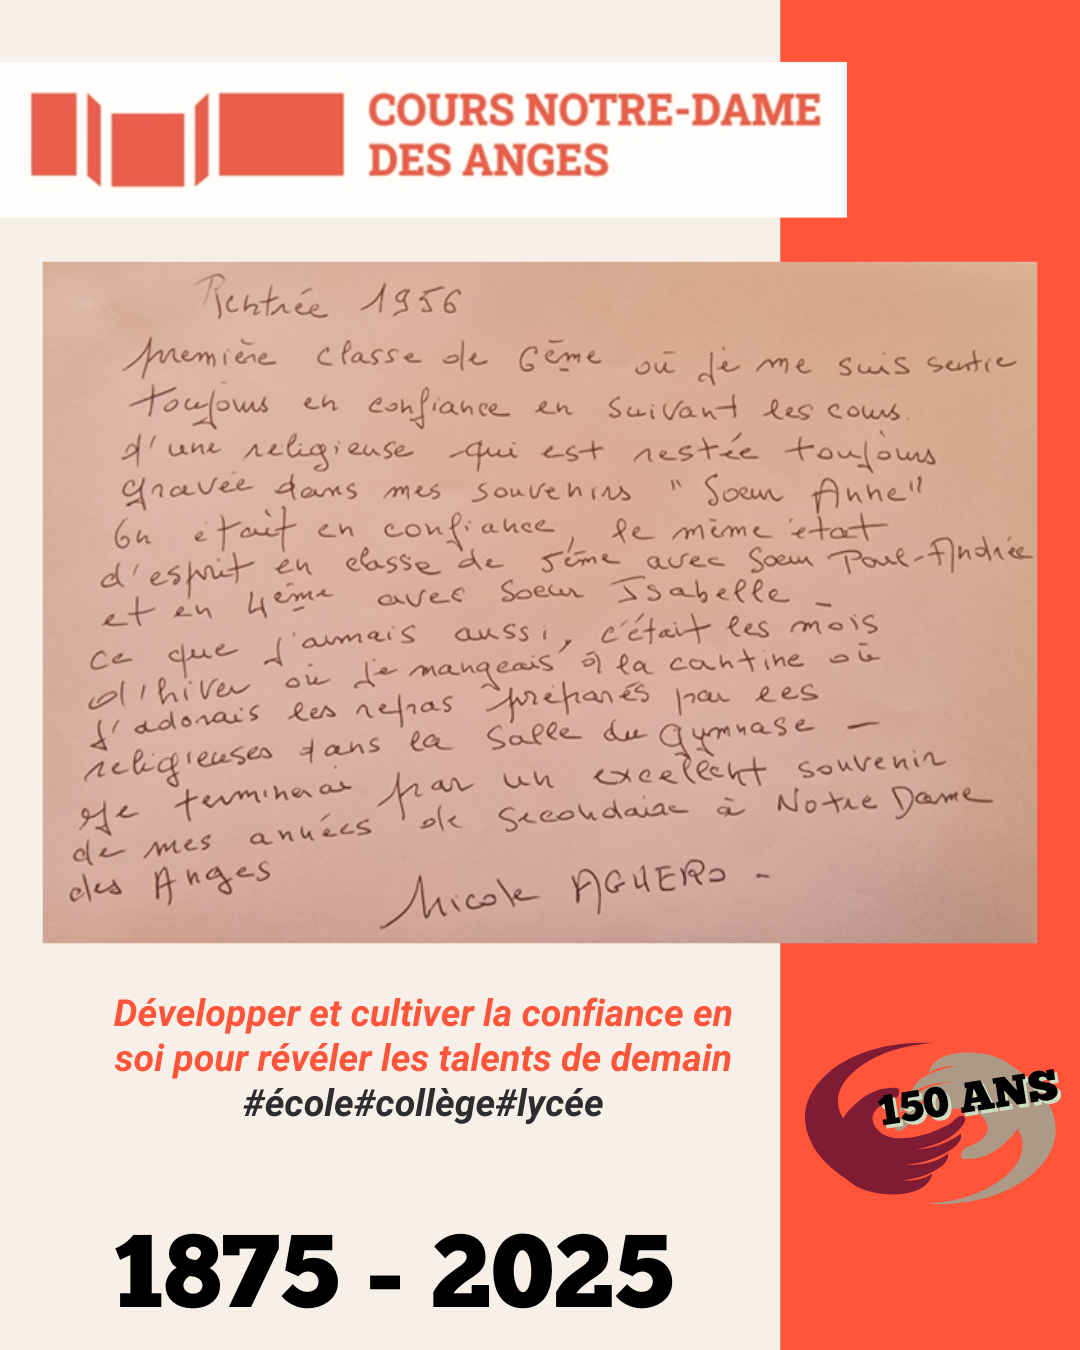 COURS NOTRE-DAME
DES ANGES
Rentrée 1956
première classe de 6ème où je me suis sentie
toujours en confiance en suivant les cours.
d'une religieuse qui est restée toujours
gravée dans mes souvenirs "Soeur Anne"
On était en confiance, le même état
d'esprit en classe de 5ème avec Soeur Paul-Andrée
et en 4ème avec Soeur Isabelle _
ce que j'aimais aussi, c'était les mois
d'hiver où je mangeais à la cantine où
j'adorais les repas préparés par les
religieuses dans la salle du gymnase —
Je terminerai par un excellent souvenir
de mes années de Secondaire à Notre Dame
des Anges
Nicole AGUERO -
Développer et cultiver la confiance en
soi pour révéler les talents de demain
#école#collège#lycée
150 ANS
1875 - 2025